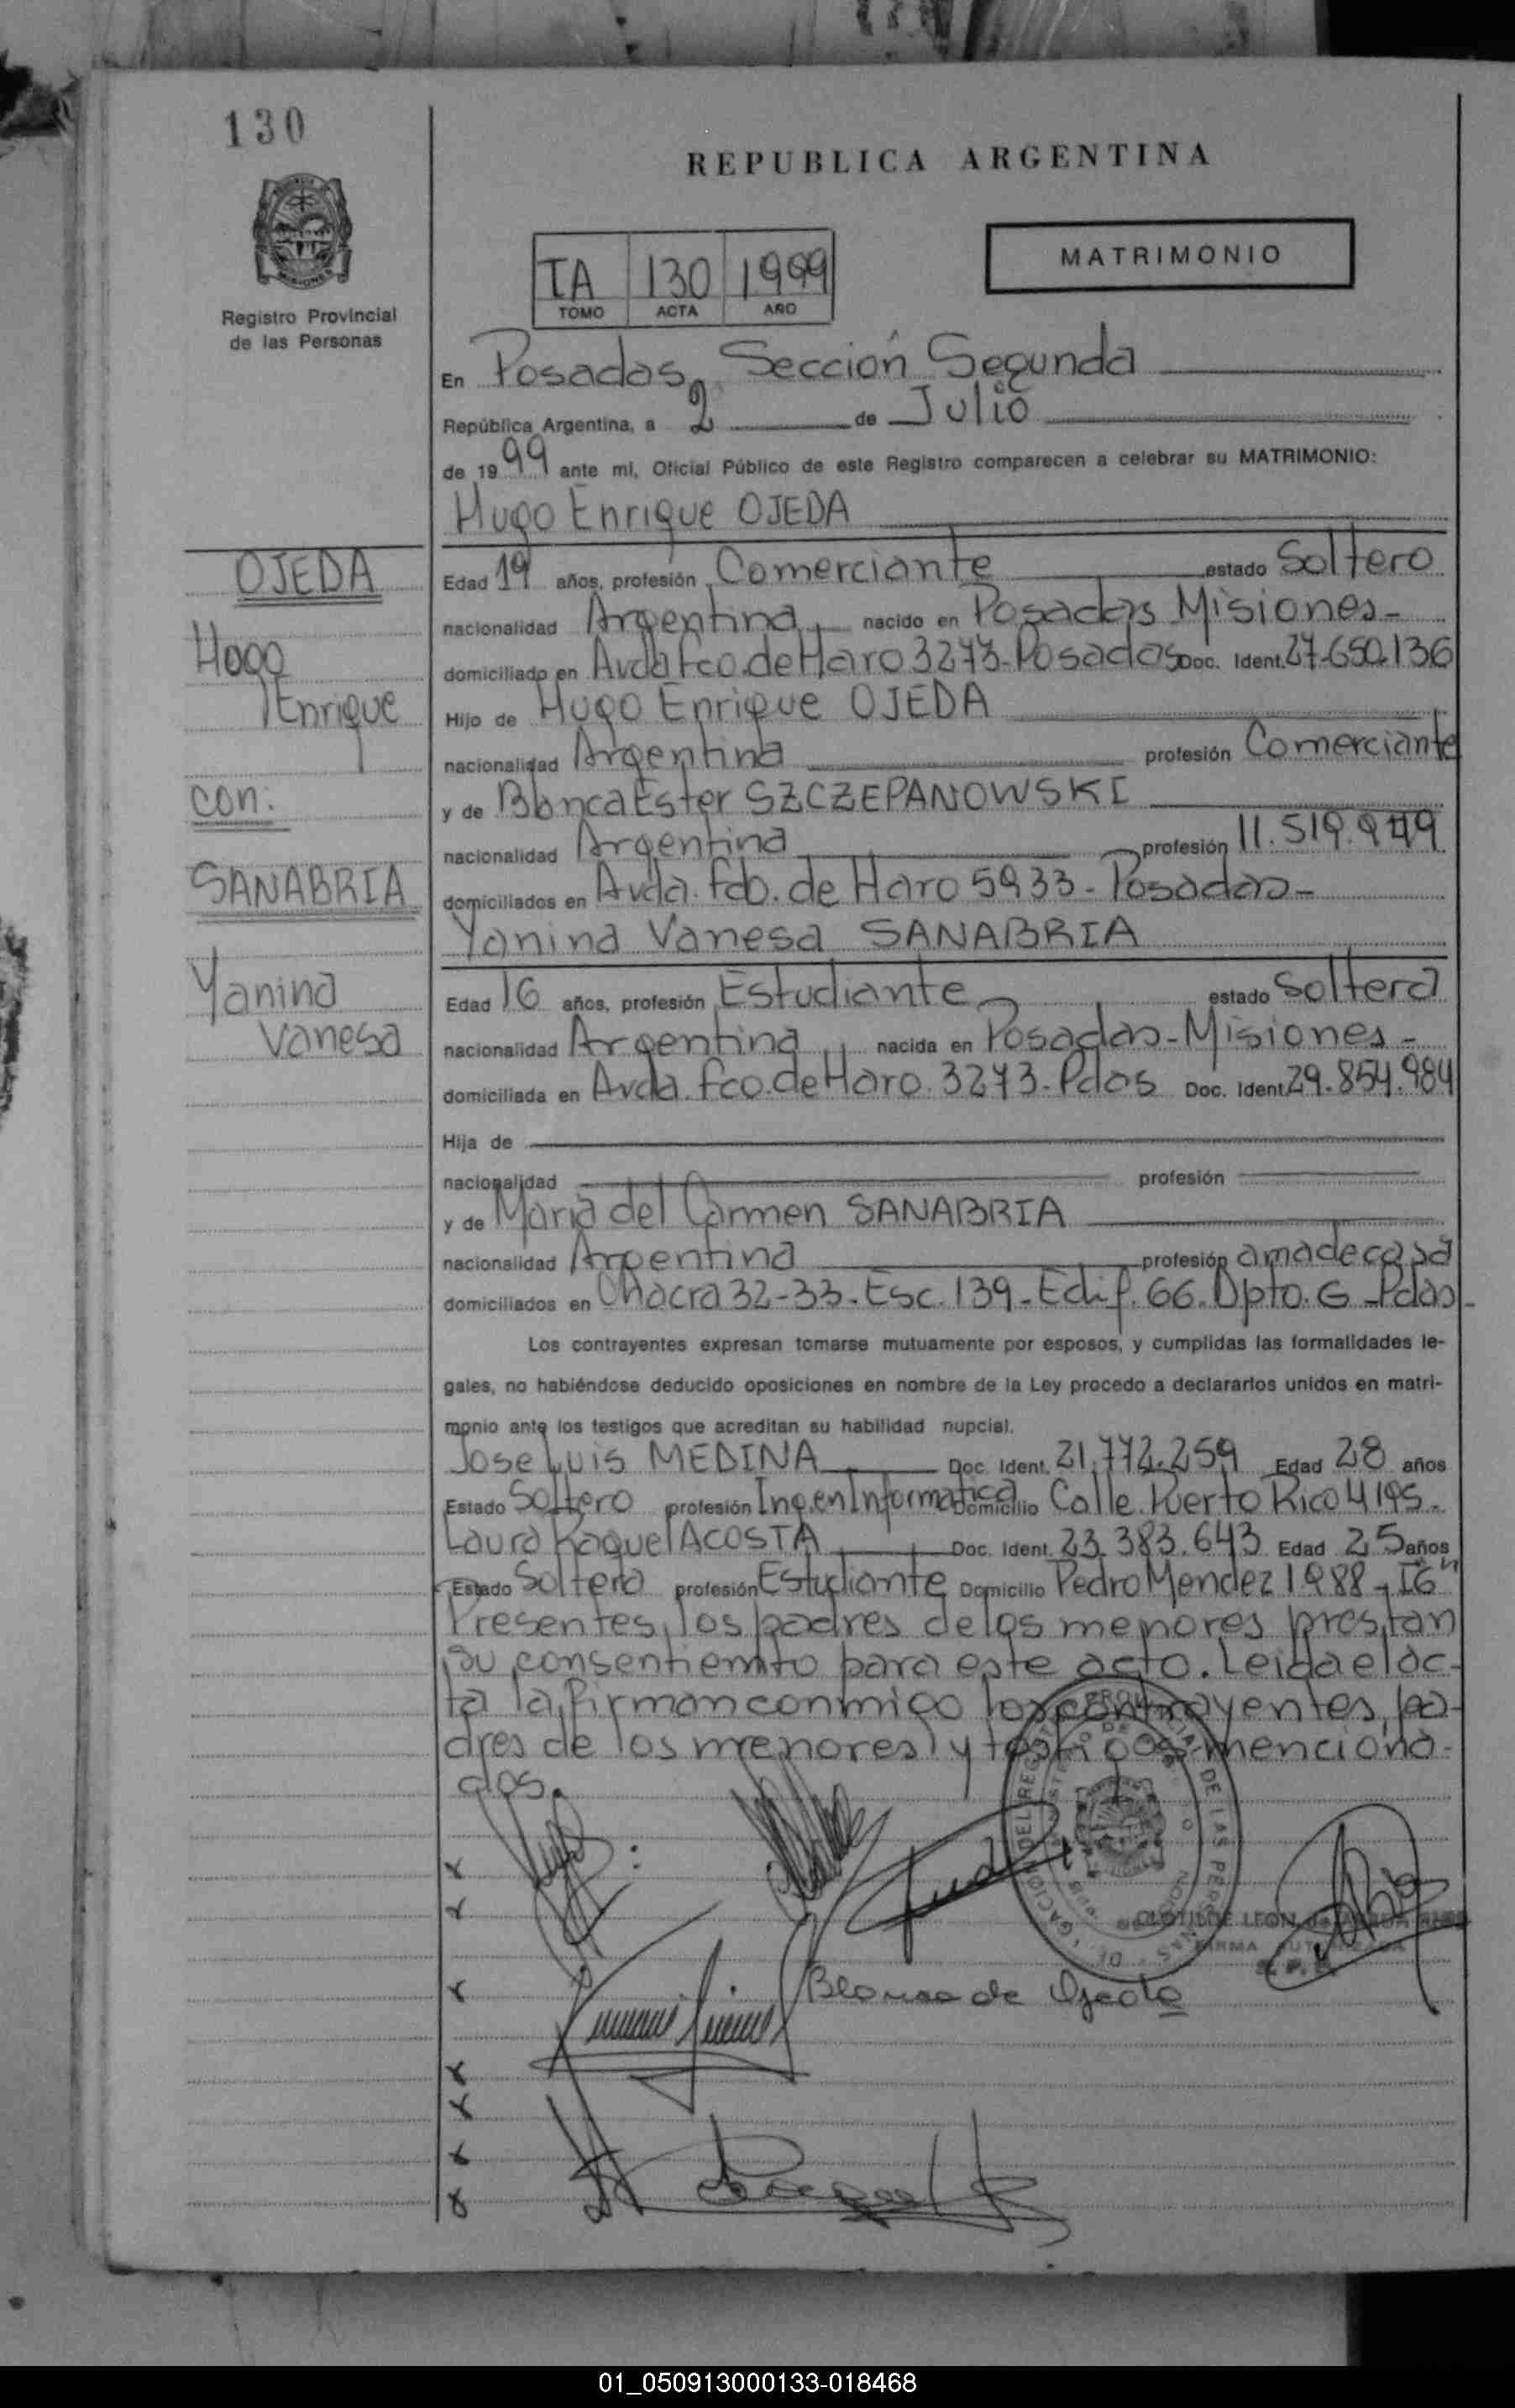 130
REPUBLICA ARGENTINA
MATRIMONIO
IA 130 1999
TOMO ACTA AÑO
Registro Provincial
de las Personas
En Posadas, Sección Segunda
República Argentina, a 2 de Julio
de 1999 ante mí, Oficial Público de este Registro comparecen a celebrar su MATRIMONIO:
Hugo Enrique OJEDA
OJEDA
Hugo
Enrique
con:
SANABRIA
Yanina
Vanesa
Edad 19 años, profesión Comerciante estado Soltero
nacionalidad Argentina nacido en Posadas Misiones-
domiciliado en Avda Fco. de Haro 3273-Posadas Doc. Ident. 27.650.136
Hijo de Hugo Enrique OJEDA
nacionalidad Argentina profesión Comerciante
y de Blanca Ester SZCZEPANOWSKI
nacionalidad Argentina profesión 11.519.979
domiciliados en Avda. Fco. de Haro 5933-Posadas-
Yanina Vanesa SANABRIA
Edad 16 años, profesión Estudiante estado Soltera
nacionalidad Argentina nacida en Posadas-Misiones-
domiciliada en Avda. Fco. de Haro. 3273-Pdas Doc. Ident. 29.854.984
Hija de
nacionalidad profesión
y de Maria del Carmen SANABRIA
nacionalidad Argentina profesión ama de casa
domiciliados en Chacra 32-33-Esc. 139-Edif. 66. Dpto. G-Pdas-
Los contrayentes expresan tomarse mutuamente por esposos, y cumplidas las formalidades le-
gales, no habiéndose deducido oposiciones en nombre de la Ley procedo a declararlos unidos en matri-
monio ante los testigos que acreditan su habilidad nupcial.
Jose Luis MEDINA Doc. Ident. 21.772.259 Edad 28 años
Estado Soltero profesión Ing. en Informatica Domicilio Calle Puerto Rico 4195-
Laura Raquel ACOSTA Doc. Ident. 23.383.643 Edad 25 años
Estado Soltera profesión Estudiante Domicilio Pedro Mendez 1988-
Presentes, los padres de los menores prestan
su consentiemto para este acto. Leida el ac-
ta la firman conmigo los contrayentes, pa-
dres de los menores y testigos menciona-
dos.
Blanca de Ojeda
01_050913000133-018468